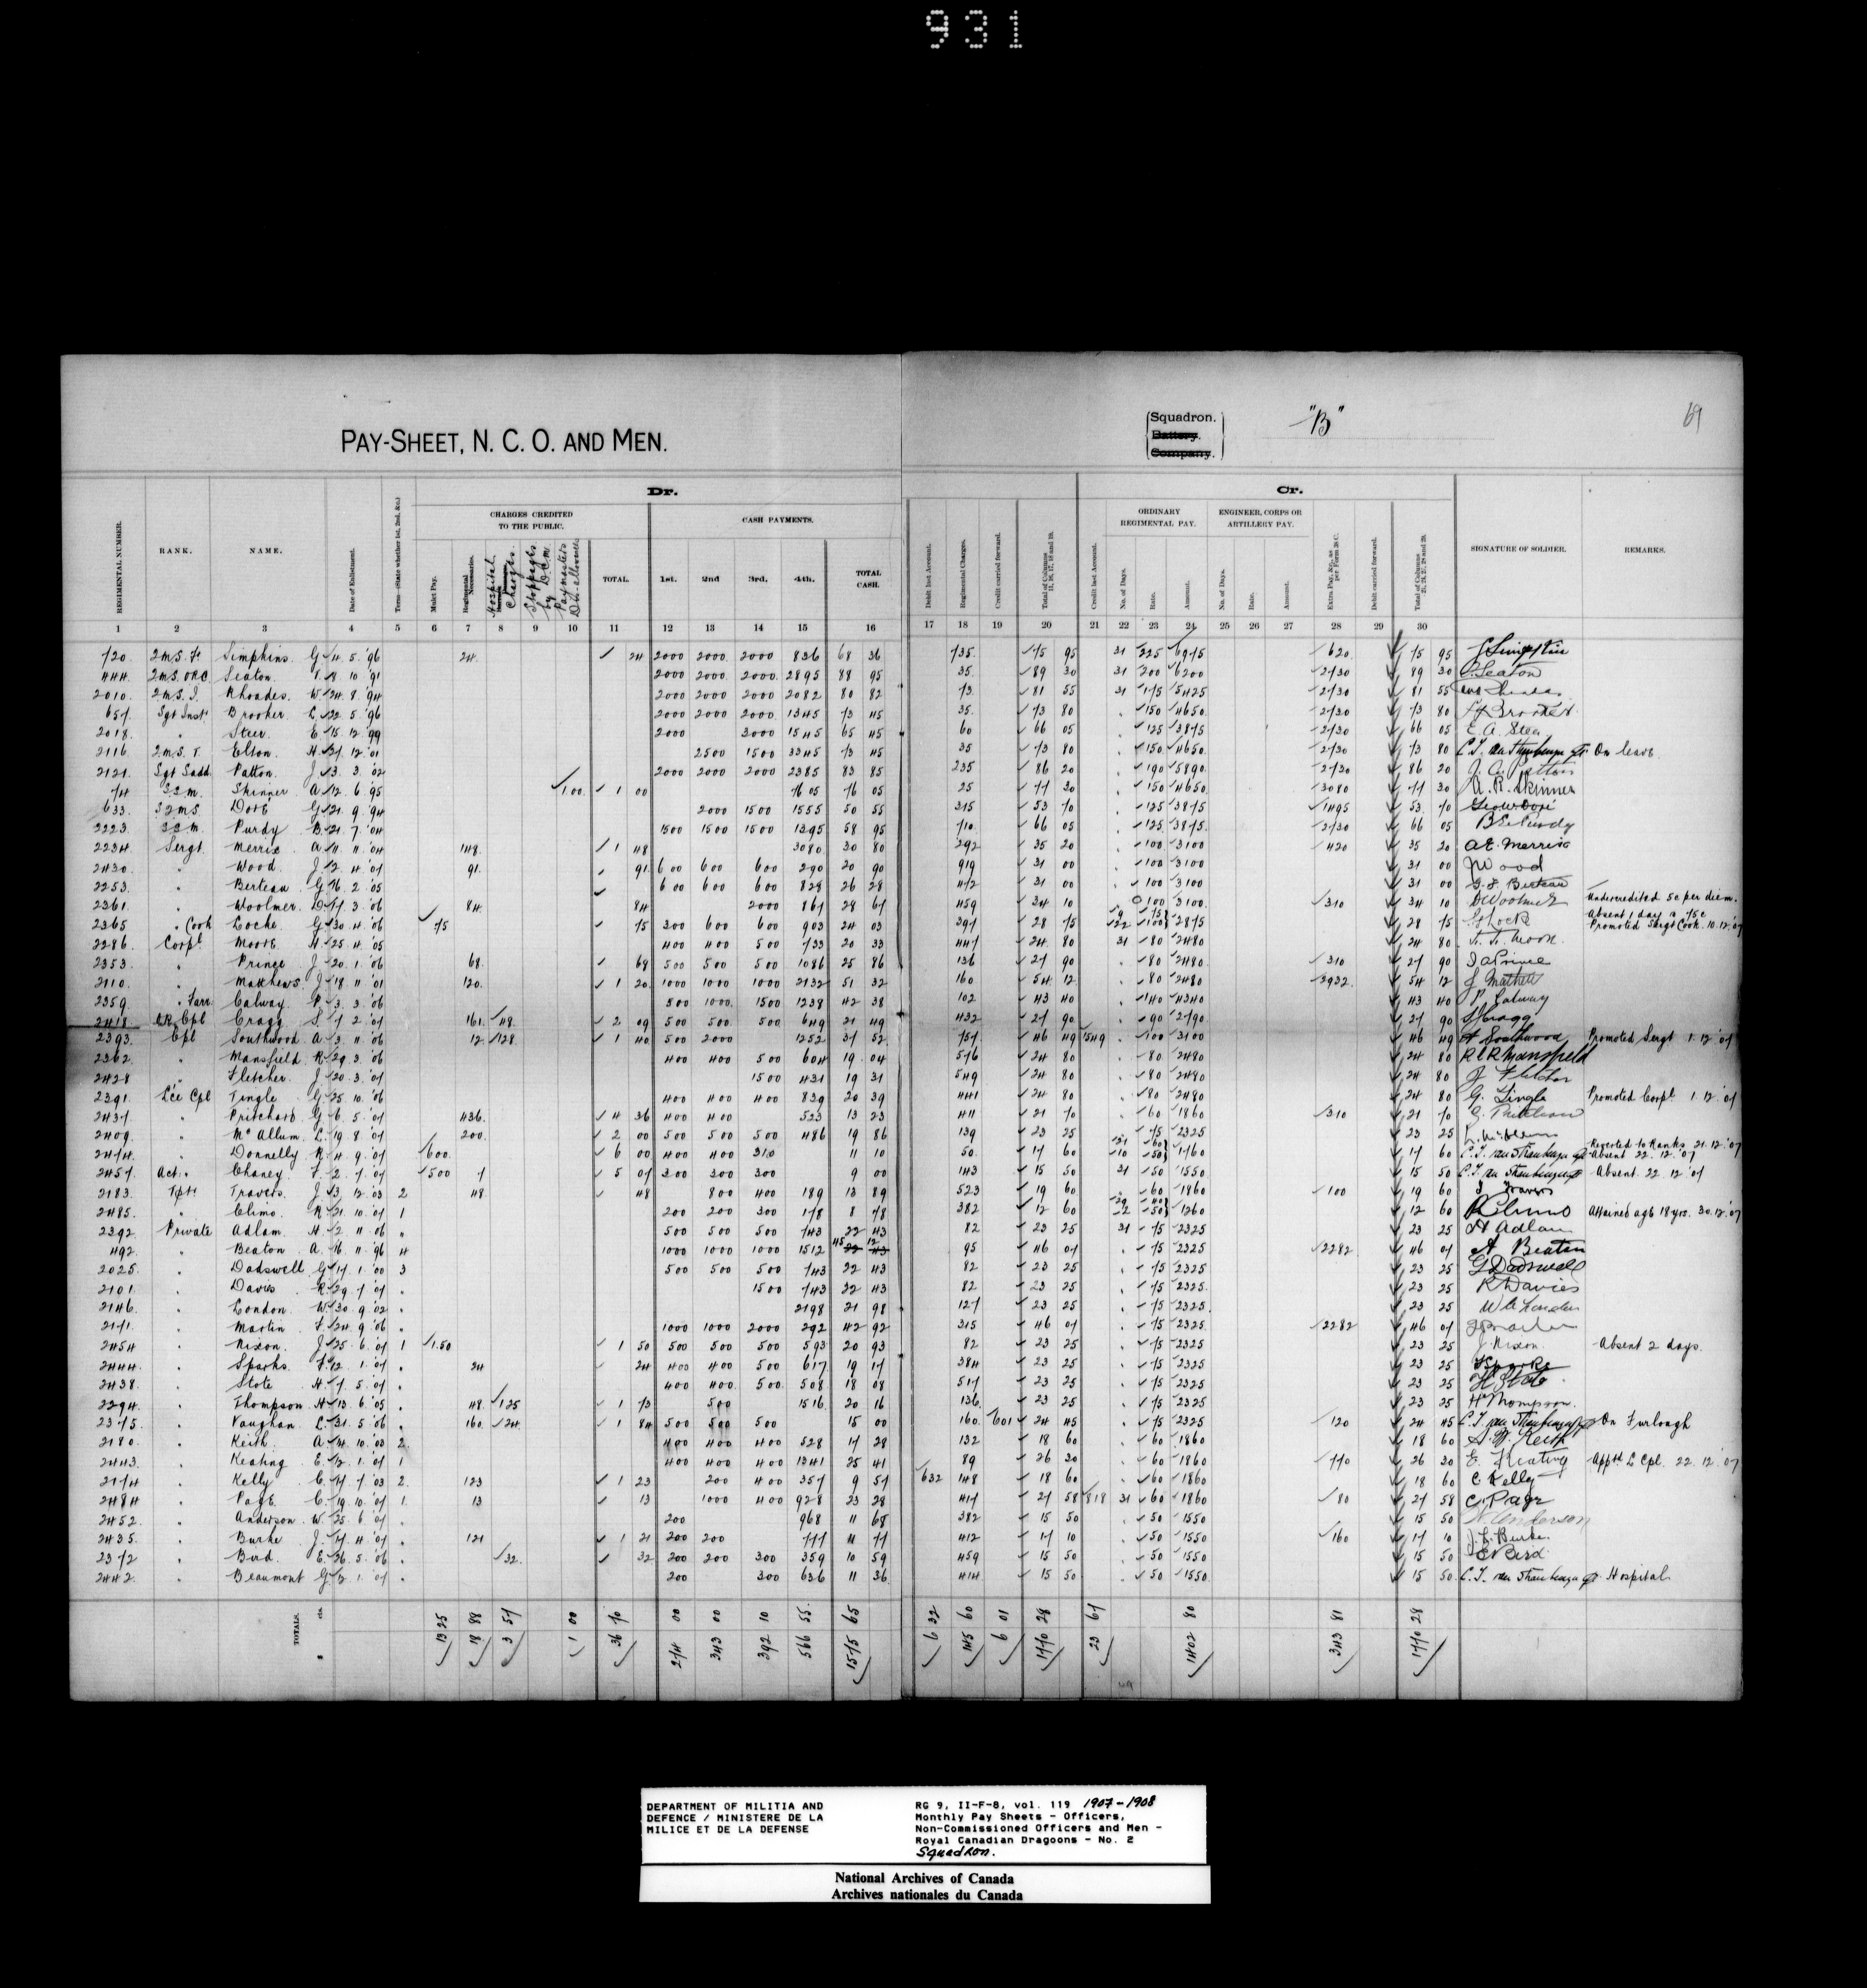 931
PAY-SHEET, N. C. O. AND MEN.
Squadron. "B" 69
Battery.
Company.
Dr. Cr.
CHARGES CREDITED TO THE PUBLIC. CASH PAYMENTS. ORDINARY REGIMENTAL PAY. ENGINEER, CORPS OR ARTILLERY PAY.
REGIMENTAL NUMBER. RANK. NAME. Date of Enlistment. Term—State whether 1st, 2nd, &c. Mulct Pay. Regimental Necessaries. Hospital Charges. Stoppages by D.C.M. Paymaster's Dis-allowances TOTAL. 1st. 2nd 3rd. 4th. TOTAL CASH. Debit last Account. Regimental Charges. Credit carried forward. Total of Columns 11, 16, 17, 18 and 19. Credit last Account. No. of Days. Rate. Amount. No. of Days. Rate. Amount. Extra Pay, &c., as per Form 38 C. Debit carried forward. Total of Columns 21, 24, 27, 28 and 29. SIGNATURE OF SOLDIER. REMARKS.
1 2 3 4 5 6 7 8 9 10 11 12 13 14 15 16 17 18 19 20 21 22 23 24 25 26 27 28 29 30
720 Simpkins G 4 5 '96 24 24 2000 2000 2000 836 68 36 735 75 95 31 225 6975 620 75 95
444 Seaton 8 10 '91 2000 2000 2000 2895 88 95 35 89 30 31 200 6200 2730 89 30 Seaton
2010 Rhoades W 24 8 '94 2000 2000 2000 2082 80 82 73 81 55 31 175 5425 2730 81 55
657 Sgt Inst Brooker L 22 5 '96 2000 2000 2000 1345 73 45 35 73 80 150 4650 2730 73 80 Brooker
2018 " Steer E 15 12 '99 2000 3000 1545 65 45 60 66 05 125 3875 2730 66 05 E A Steer
2116 Elton H 27 12 '01 2500 1500 3345 73 45 35 73 80 150 4650 2730 73 80 On leave
2121 Sgt Sadd Patton J 3 3 '02 2000 2000 2000 2385 83 85 235 86 20 190 5890 2730 86 20
74 S.S.M. Skinner A 12 6 '95 1.00 1 00 7605 76 05 25 77 30 150 4650 3080 77 30 A. R. Skinner
633 Doré G 21 9 '94 2000 1500 1555 50 55 315 53 70 125 3875 1495 53 70
2223 S.S.M. Purdy B 21 7 '04 1500 1500 1500 1395 58 95 710 66 05 125 3875 2730 66 05 Purdy
2234 Sergt Merrix A 11 11 '04 148 1 48 3080 30 80 292 35 20 100 3100 420 35 20 A E Merrix
2430 " Wood J 2 4 '07 91 91 600 600 600 290 20 90 919 31 00 100 3100 31 00 J Wood
2253 " Berteau G 16 2 '05 600 600 600 828 26 28 472 31 00 100 3100 31 00
2361 " Woolmer D 17 3 '06 84 84 2000 861 28 61 459 34 10 100 3100 310 34 10 D Woolmer Undercredited 5c per diem.
2365 " Cook Locke G 30 4 '06 75 75 300 600 600 903 24 03 397 28 75 9 75 22 100 2875 28 75 Absent 1 day is 75c Promoted Sergt Cook. 10.12.'07
2286 Corpl Moore H 25 4 '05 400 400 500 733 20 33 447 24 80 31 80 2480 24 80
2353 " Prince J 20 1 '06 68 68 500 500 500 1086 25 86 136 27 90 80 2480 310 27 90 J A Prince
2110 " Matthews J 18 11 '01 120 1 20 1000 1000 1000 2132 51 32 160 54 12 80 2480 2932 54 12
2359 " Farr Galway P 3 3 '06 500 1000 1500 1238 42 38 102 43 40 140 4340 43 40 P Galway
2418 Cpl Cragg S 7 2 '07 161 48 2 09 500 500 500 649 21 49 432 27 90 90 2790 27 90 Cragg
2393 Cpl Southwood A 3 11 '06 12 128 1 40 500 2000 1252 37 52 757 46 49 1549 100 3100 46 49 Southwood Promoted Sergt 1.12.'07
2362 " Mansfield R 29 3 '06 400 400 500 604 19 04 576 24 80 80 2480 24 80 Mansfield
2428 " Fletcher J 20 3 '07 1500 431 19 31 549 24 80 80 2480 24 80 J Fletcher
2391 Lce Cpl Tingle G 25 10 '06 400 400 400 839 20 39 441 24 80 80 2480 24 80 G. Tingle Promoted Corpl 1.12.'07
2437 " Pritchard G 6 5 '07 436 4 36 400 400 523 13 23 411 21 70 60 1860 310 21 70
2409 " McAllum L 19 8 '07 200 2 00 500 500 500 486 19 86 139 23 25 75 2325 23 25
2414 " Donnelly R 4 9 '07 600 6 00 400 400 310 11 10 50 17 60 21 60 10 50 1760 17 60 Reverted to Ranks 21.12.'07 Absent 22.12.'07
2457 Act. " Chaney F 2 7 '07 500 7 5 07 300 300 300 9 00 143 15 50 31 50 1550 15 50 Absent 22.12.'07
2183 Tptr Travers J 3 12 '03 2 48 48 800 400 189 13 89 523 19 60 60 1860 100 19 60 Travers
2485 " Climo R 21 10 '07 1 200 200 300 178 8 78 382 12 60 29 40 2 50 1260 12 60 R Climo Attained age 18 yrs. 30.12.'07
2392 Private Adlam H 2 11 '06 " 500 500 500 743 22 43 82 23 25 31 75 2325 23 25 H Adlam
492 " Beaton A 16 11 '96 4 1000 1000 1000 1512 45 12 95 46 07 75 2325 2282 46 07 A Beaton
2025 " Dadswell G 17 1 '00 3 500 500 500 743 22 43 82 23 25 75 2325 23 25 G Dadswell
2101 " Davis R 29 7 '07 " 1500 743 22 43 82 23 25 75 2325 23 25 R Davies
2146 " London W 30 9 '02 " 2198 21 98 127 23 25 75 2325 23 25 London
2171 " Martin F 24 9 '06 " 1000 1000 2000 292 42 92 315 46 07 75 2325 2282 46 07
2454 " Nixon J 25 6 '07 1 1.50 1 50 500 500 500 593 20 93 82 23 25 75 2325 23 25 J Nixon Absent 2 days.
2444 " Sparks F 12 1 '07 " 24 24 400 400 500 617 19 17 384 23 25 75 2325 23 25 Sparks
2438 " Stote H 7 5 '07 " 400 400 500 508 18 08 517 23 25 75 2325 23 25 H Stote
2294 " Thompson H 13 6 '05 " 48 125 1 73 500 1516 20 16 136 23 25 75 2325 23 25 H Thompson.
2375 " Vaughan L 31 5 '06 " 160 24 1 84 500 500 500 15 00 160 601 24 45 75 2325 120 24 45 On Furlough
2180 " Keith A 14 10 '03 2 400 400 400 528 17 28 132 18 60 60 1860 18 60 Keith
2443 " Keating E 12 1 '07 1 400 400 400 1341 25 41 89 26 30 60 1860 770 26 30 E. Keating Apptd L Cpl. 22.12.'07
2174 " Kelly C 17 7 '03 2 123 1 23 200 400 357 9 57 632 148 18 60 60 1860 18 60 C Kelly
2484 " Page C 19 10 '07 1 13 13 1000 400 928 23 28 417 27 58 818 31 60 1860 80 27 58 C. Page
2452 " Anderson W 25 6 '07 " 200 968 11 68 382 15 50 50 1550 15 50 Anderson
2435 " Burke J 17 4 '07 " 121 1 21 200 200 777 11 77 412 17 10 50 1550 160 17 10 J. L. Burke
2372 " Bird E 26 5 '06 " 32 32 200 200 300 359 10 59 459 15 50 50 1550 15 50 E Bird
2442 " Beaumont G 12 1 '07 " 200 300 636 11 36 414 15 50 50 1550 15 50 Hospital
TOTALS. $ cts. 13 25 18 88 3 57 1 00 36 70 274 00 343 00 392 10 566 55 1575 65 6 32 145 60 6 01 1770 28 23 67 1402 80 343 81 1770 28
DEPARTMENT OF MILITIA AND
DEFENCE / MINISTERE DE LA
MILICE ET DE LA DEFENSE
RG 9, II-F-8, vol. 119 1907-1908
Monthly Pay Sheets - Officers,
Non-Commissioned Officers and Men -
Royal Canadian Dragoons - No. 2
Squadron.
National Archives of Canada
Archives nationales du Canada